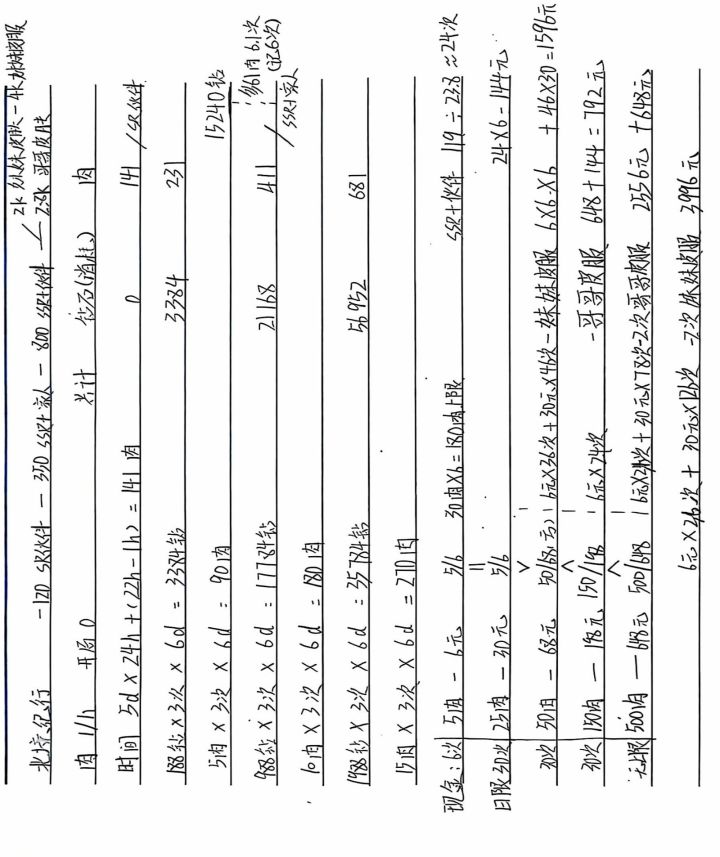 2k 妹妹皮肤 - 4k 妹妹皮服
北境纪行 - 120 SR伙伴 - 350 SSR+家人 - 800 SSR+伙伴 / 2.8k 哥哥皮肤
肉 1/h 开局 0 共计 钻石(消耗) 肉
时间 5d × 24h + (22h - 1h) = 141肉 0 141 / SR伙伴
188钻 × 3次 × 6d = 3384钻 3384 231
5肉 × 3次 × 6d = 90肉 15240钻
988钻 × 3次 × 6d = 17784钻 21168 411 / SSR+家人
10肉 × 3次 × 6d = 180肉
1988钻 × 3次 × 6d = 35784钻 56952 681
15肉 × 3次 × 6d = 270肉
现金: 6次 5肉 - 6元 5/6 30肉×6 = 180肉上限 SSR+伙伴 119 ÷ 23.8 ≈ 24次
日限 30次 25肉 - 30元 5/6 24×6 = 144元
30次 50肉 - 68元 50/68(亏) 6元×36次 + 30元×46次 - 妹妹皮服 6×6×6 + 46×30 = 1596元
30次 150肉 - 198元 150/198 6元×24次 - 哥哥皮服 648 + 144 = 792元
无上限 500肉 - 648元 500/648 6元×26次 + 30元×78次 - 2次哥哥皮服 2556元 + 648元
6元×26次 + 30元×126次 - 2次妹妹皮服 3996元